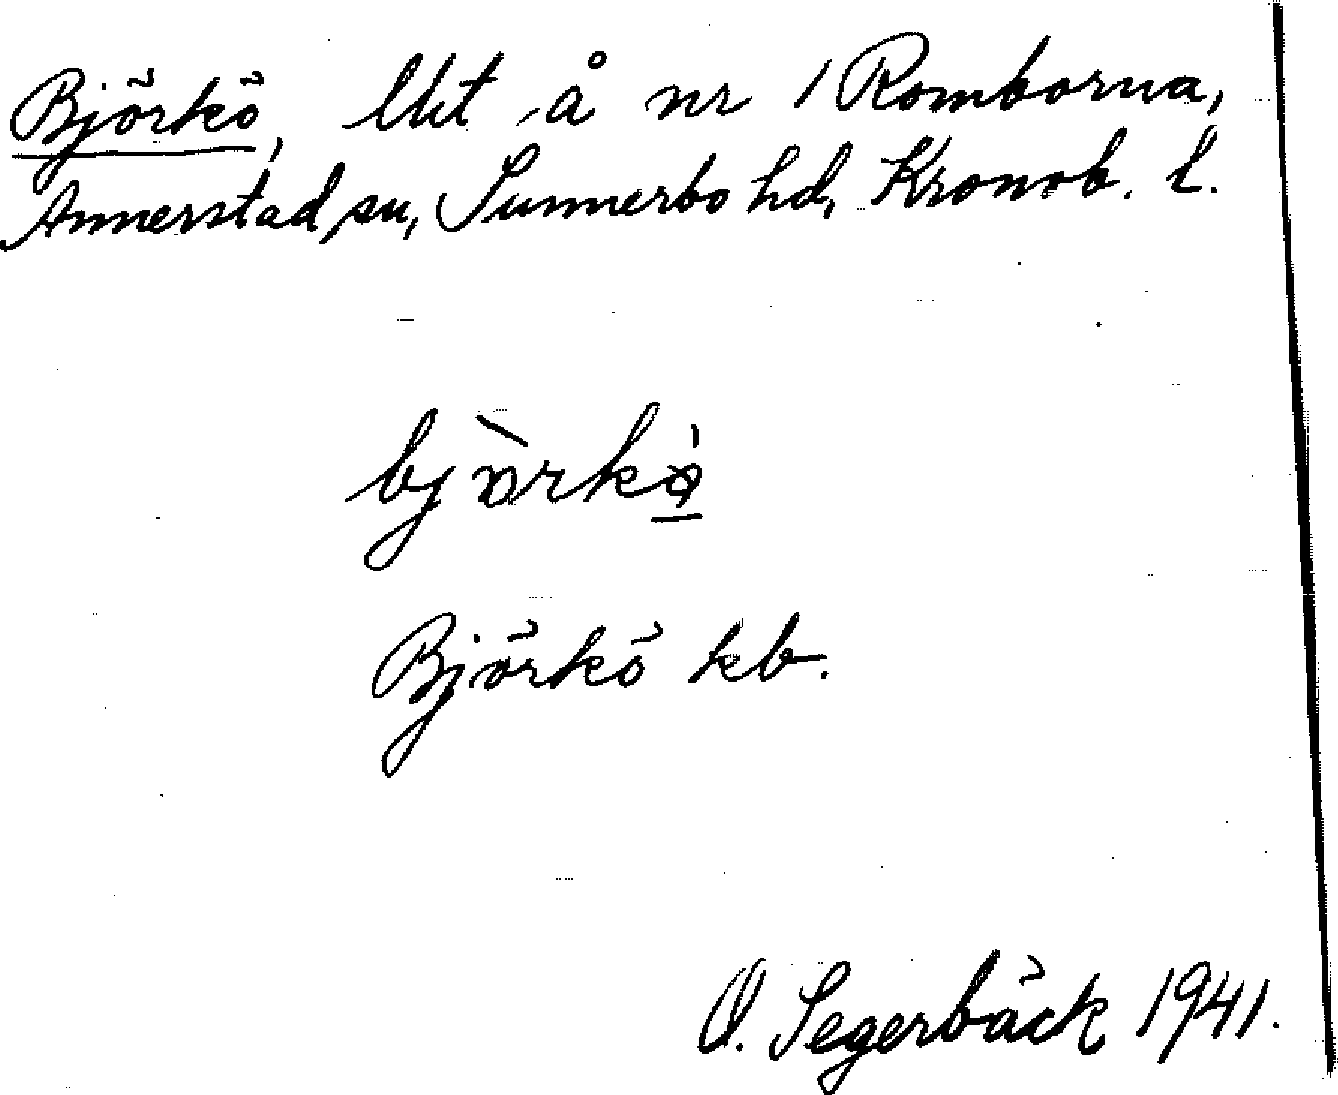 Björkö, lht å nr 1 Romborna,
Annerstad sn, Sunnerbo hd, Kronob. l.
bjòrkö̀
Björkö kb.
O. Segerbäck 1941.